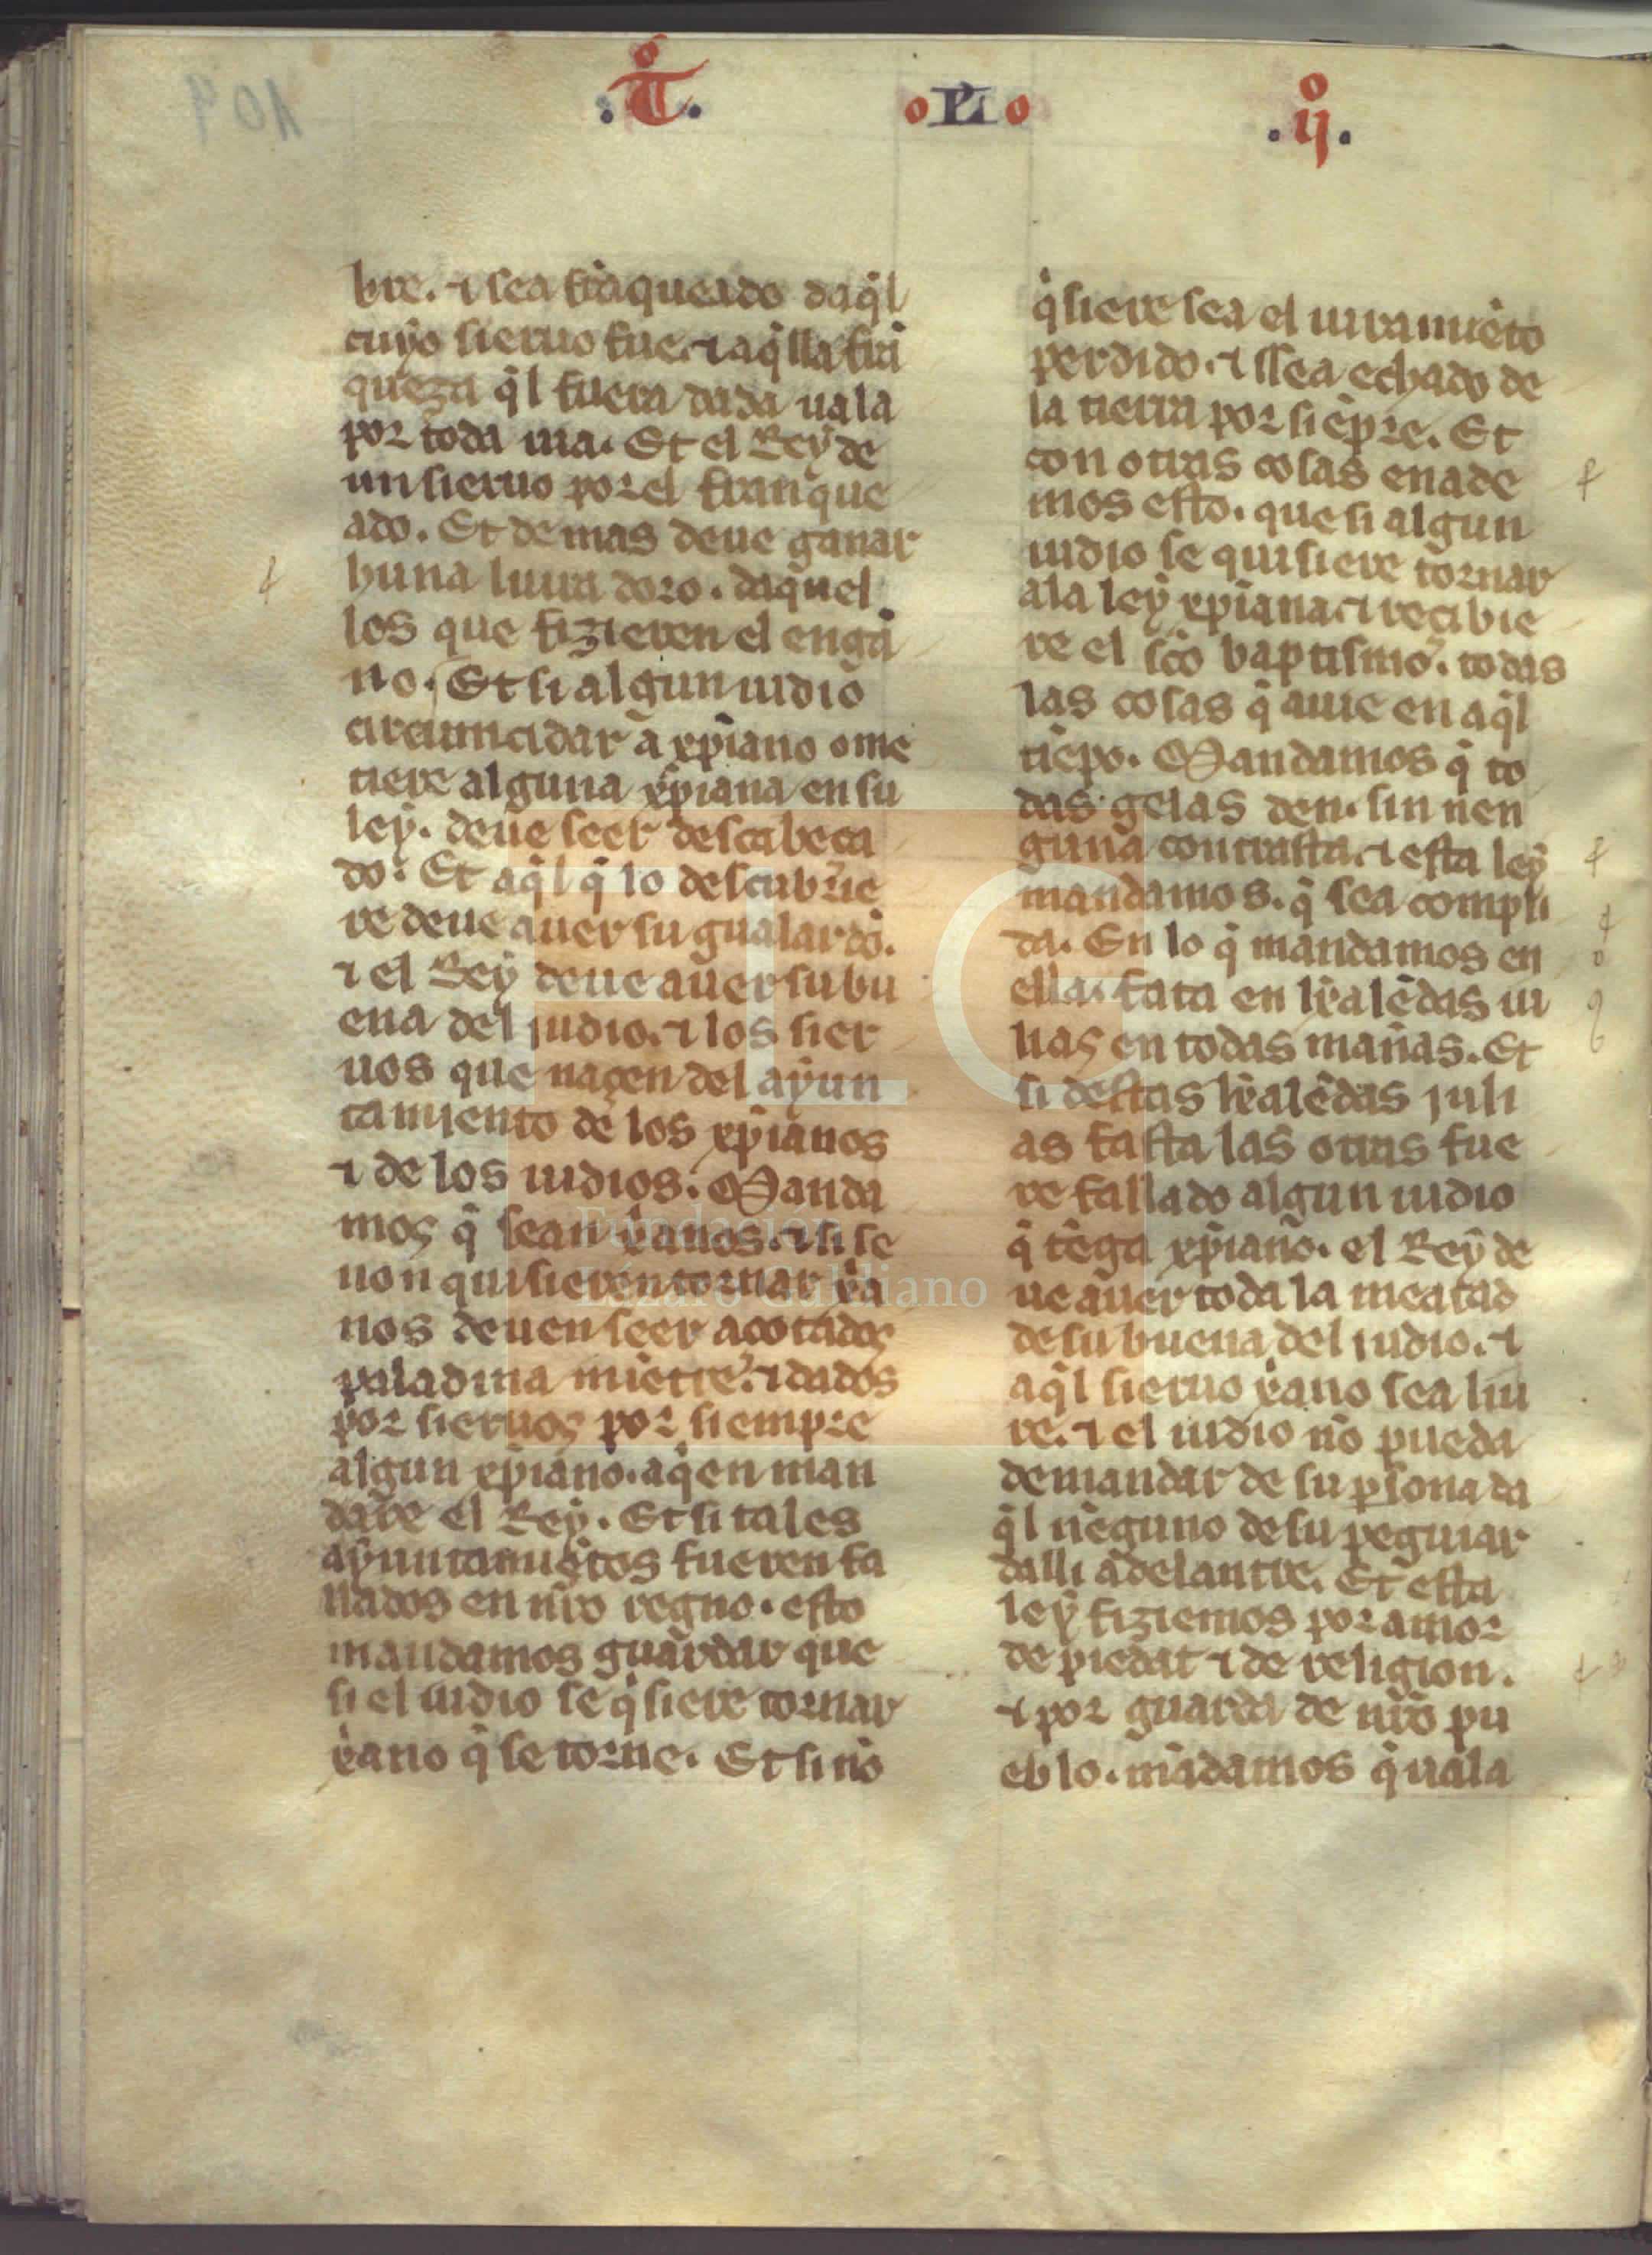 .t͛. o L o .ij.
bre. ⁊ sea frãqueado daq̃l
cuyo sieruo fue. ⁊ aq̃lla fra
queza q̃l fuera dada uala
por toda uia. Et el Rey de
un sieruo por el franque
ado. Et de mas deue ganar
huna liura doro. daquel
los que fizieren el enga
no. Et si algun iudio
circumcidar a xp̃iano o me
tiere alguna xp̃iana en su
ley. deue seer descabeça
do. Et aq̃l q̃ lo descubrie
re deue auer su gualardõ.
⁊ el Rey deue auer su bu
ena del judio. ⁊ los sier
uos que naçen del ayun
tamiento de los xp̃ianos
⁊ de los iudios. Manda
mos q̃ sean x̃anos. ⁊ si se
non quisieren tornar x̃a
nos deuen seer açotados
paladina miẽtre. ⁊ dados
por sieruos por siempre
algun xp̃iano. aq̃en man
dare el Rey. Et si tales
ayuntamiẽtos fueren fa
llados en nr̃o regno. esto
mandamos guardar que
si el iudio se q̃siere tornar
x̃ano q̃ se torne. Et si nõ
q̃siere sea el iuramiẽto
perdido. ⁊ ssea echado de
la tierra por siẽpre. Et
con otras cosas enade
mos esto. que si algun
iudio se quisiere tornar
a la ley xp̃iana. ⁊ recibie
re el sc̃o baptismo. todas
las cosas q̃ auie en aq̃l
tiẽpo. Mandamos q̃ to
das gelas den. sin nen
guna contrasta. ⁊ esta ley
mandamos. q̃ sea compli
da. En lo q̃ mandamos en
ella. fata en k̃alẽdas iu
lias en todas mañas. Et
si destas k̃alẽdas juli
as fasta las otras fue
re fallado algun iudio
q̃ tẽga xp̃iano. el Rey de
ue auer toda la meatad
de su buena del judio. ⁊
aq̃l sieruo x̃ano sea liu
re. ⁊ el iudio nõ pueda
demandar de su p̃sona da
q̃l nẽguno de su peguiar
dalli adelantre. Et esta
ley fiziemos por amor
de piedat ⁊ de religion.
⁊ por guarda de nr̃o pu
eblo. mãdamos q̃ uala
Fundación
Lázaro Galdiano
LG
104